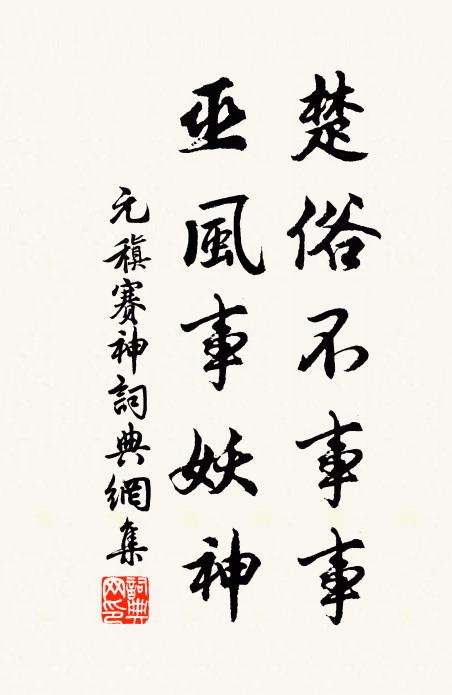 楚俗不事事
巫風事妖神
元稹賽神詞典網集
詞典网印